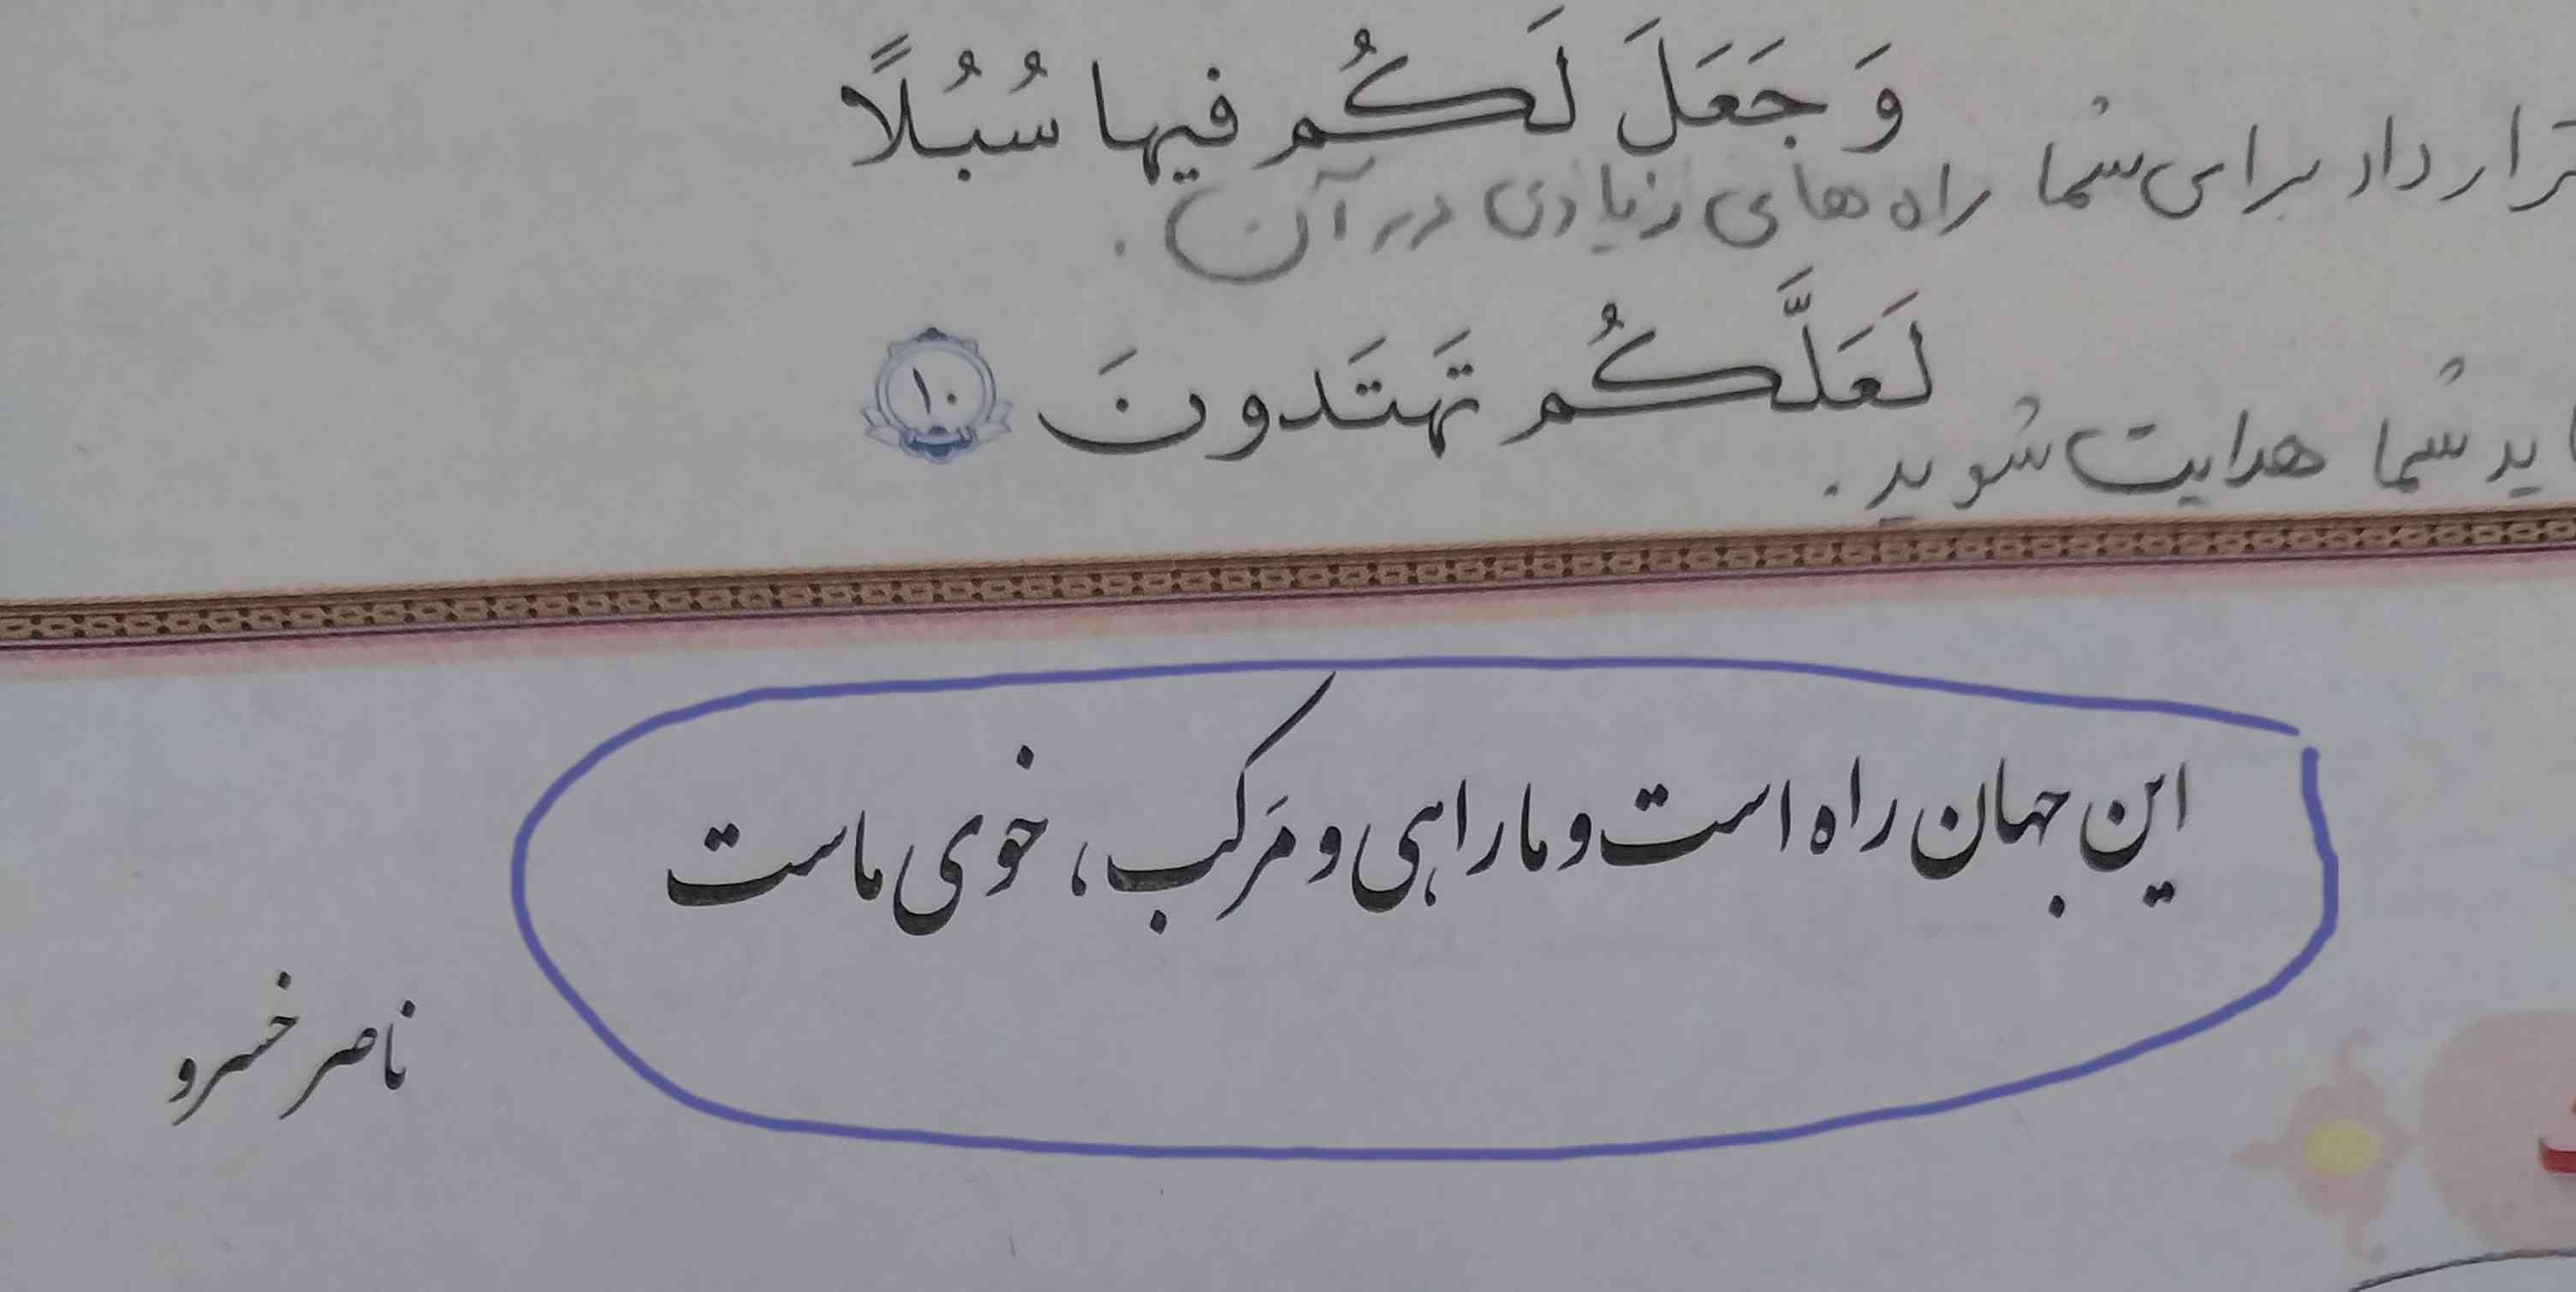 وَ جَعَلَ لَكُم فيها سُبُلًا
قرار داد برای شما راه های زیادی در آن .
لَعَلَّكُم تَهتَدونَ ۱۰
شاید شما هدایت شوید .
این جهان راه است و ما راهی و مَرکب ، خوی ماست
ناصر خسرو